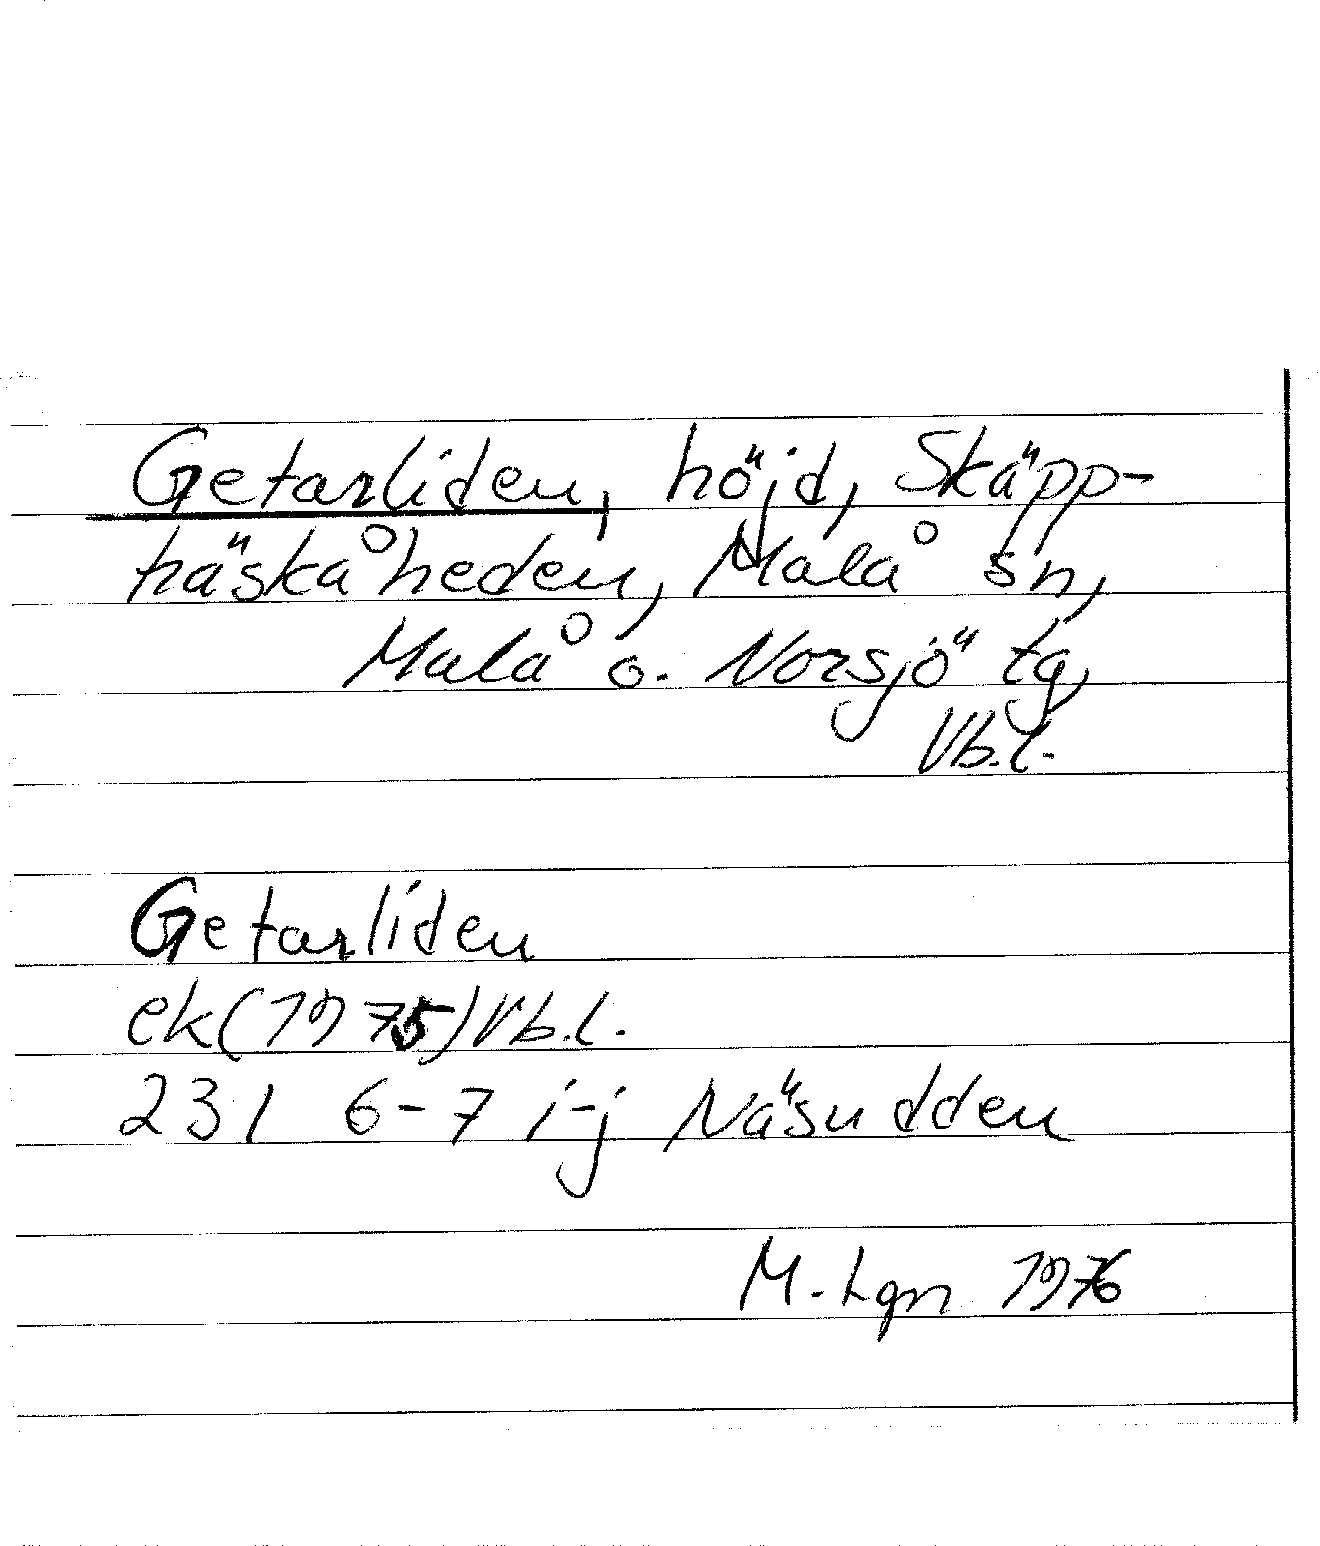 Getarliden, höjd, Skäpp-
häskåheden, Malå sn,
Malå o. Norsjö tg,
Vb.l.
Getarliden
ek(1975)Vb.l.
23I 6-7 i-j Näsudden
M. Lgn 1976